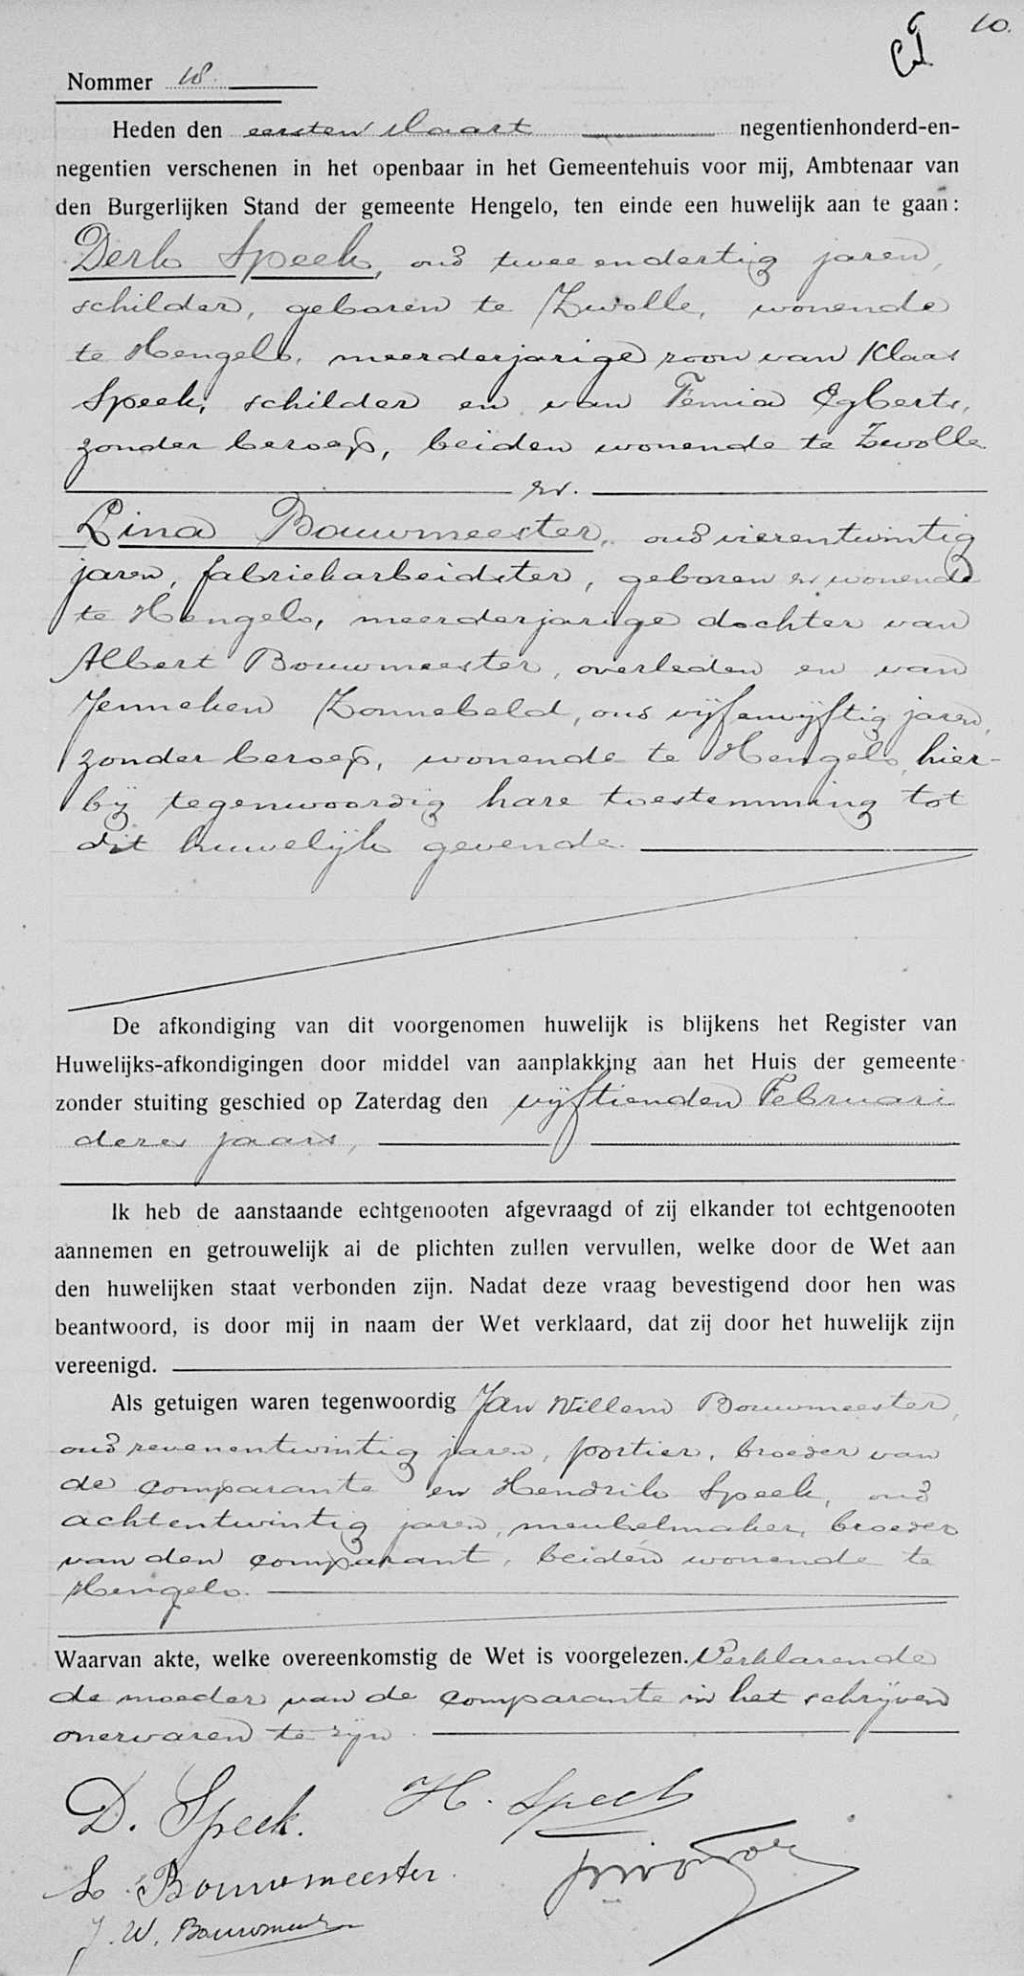 10.
Nommer 18
Heden den eersten Maart negentienhonderd-en-
negentien verschenen in het openbaar in het Gemeentehuis voor mij, Ambtenaar van
den Burgerlijken Stand der gemeente Hengelo, ten einde een huwelijk aan te gaan:
Derk Speek, oud twee endertig jaren,
schilder, geboren te Zwolle, wonende
te Hengelo, meerderjarige zoon van Klaas
Speek, schilder en van Femia Egberts,
zonder beroep, beiden wonende te Zwolle
en.
Lina Bouwmeester, oud vierentwintig
jaren, fabriekarbeidster, geboren en wonende
te Hengelo, meerderjarige dochter van
Albert Bouwmeester, overleden en van
Jenneken Zonnebeld, oud vijfenvijftig jaren,
zonder beroep, wonende te Hengelo, hier-
bij tegenwoordig hare toestemming tot
dit huwelijk gevende.
De afkondiging van dit voorgenomen huwelijk is blijkens het Register van
Huwelijks-afkondigingen door middel van aanplakking aan het Huis der gemeente
zonder stuiting geschied op Zaterdag den vijftienden Februari
dezes jaars,
Ik heb de aanstaande echtgenooten afgevraagd of zij elkander tot echtgenooten
aannemen en getrouwelijk al de plichten zullen vervullen, welke door de Wet aan
den huwelijken staat verbonden zijn. Nadat deze vraag bevestigend door hen was
beantwoord, is door mij in naam der Wet verklaard, dat zij door het huwelijk zijn
vereenigd.
Als getuigen waren tegenwoordig Jan Willem Bouwmeester,
oud zevenentwintig jaren, portier, broeder van
de comparante en Hendrik Speek, oud
achtentwintig jaren, meubelmaker, broeder
van den comparant, beiden wonende te
Hengelo.
Waarvan akte, welke overeenkomstig de Wet is voorgelezen. Verklarende
de moeder van de comparante in het schrijven
onervaren te zijn.
D. Speek. H. Speek
L. Bouwmeester.
J. W. Bouwmeester